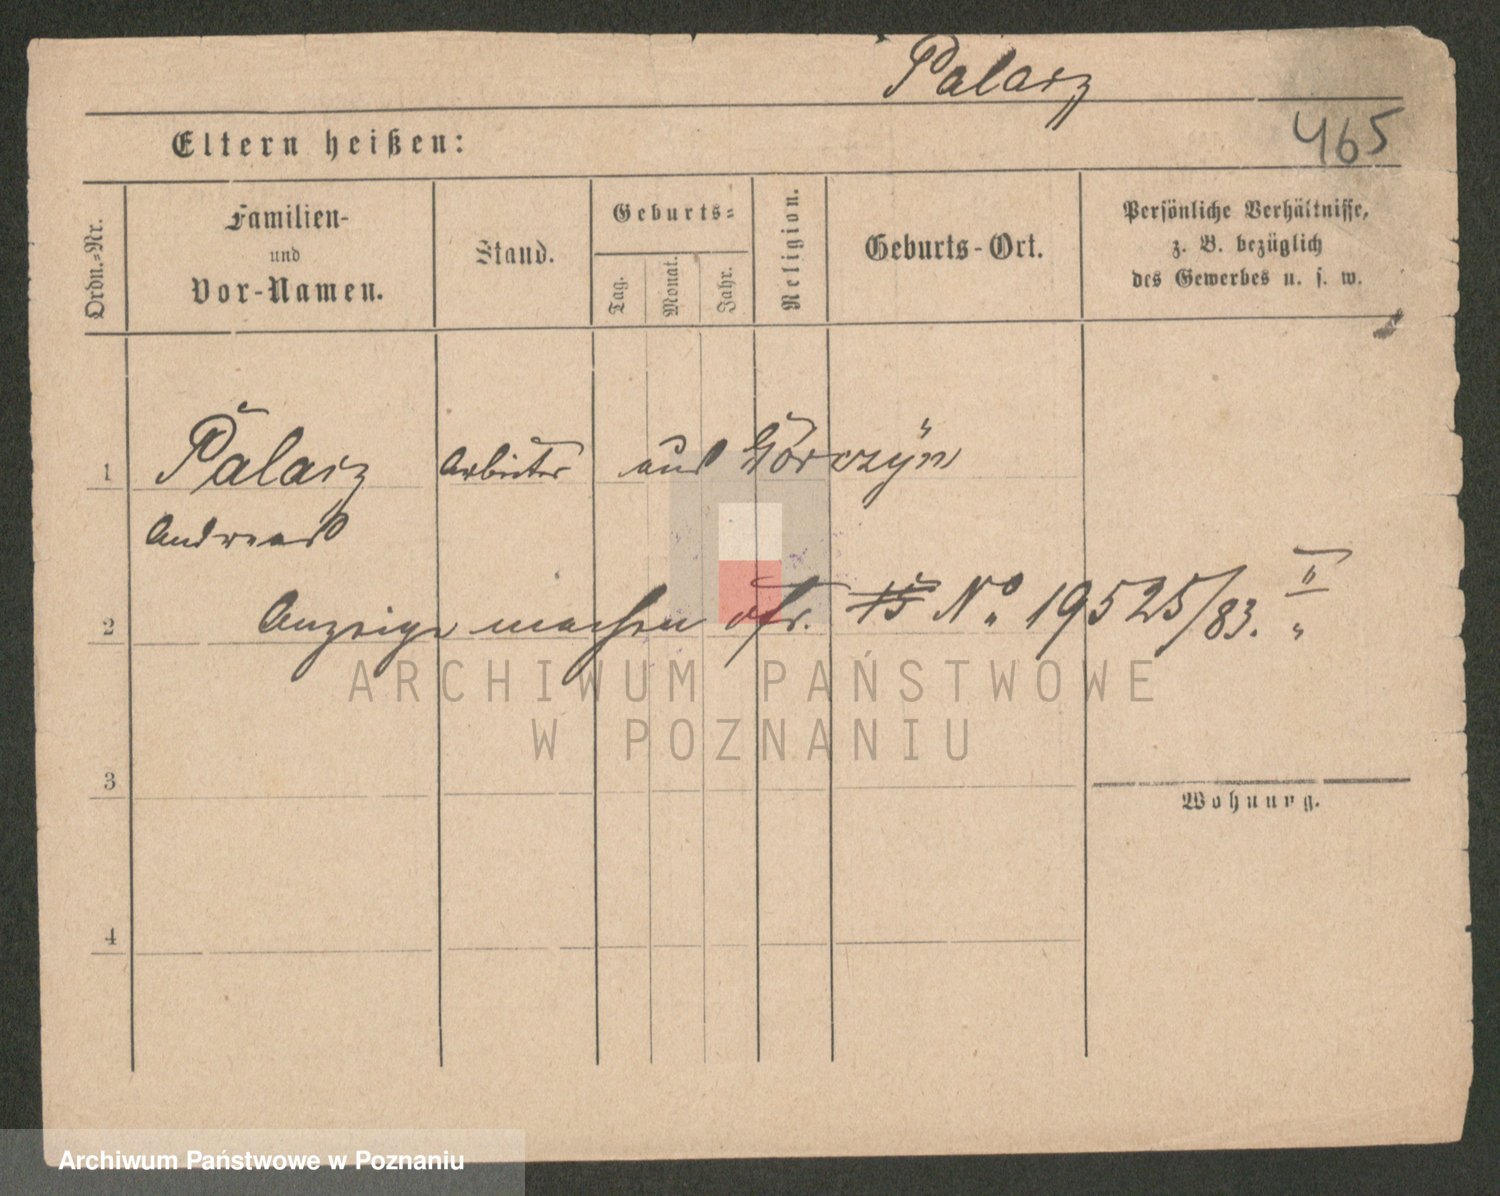 Palarz
465
Eltern heißen:
Ordn.-Nr.
Familien-
und
Vor-Namen.
Stand.
Geburts-
Tag.
Monat.
Jahr.
Religion.
Geburts-Ort.
Persönliche Verhältnisse,
z. B. bezüglich
des Gewerbes u. s. w.
1 Palarz Arbeiter aus Górczyn
Andreas
2 Anzeige machen No 19525/83. II
3
Wohnung.
4
ARCHIWUM PAŃSTWOWE
W POZNANIU
Archiwum Państwowe w Poznaniu